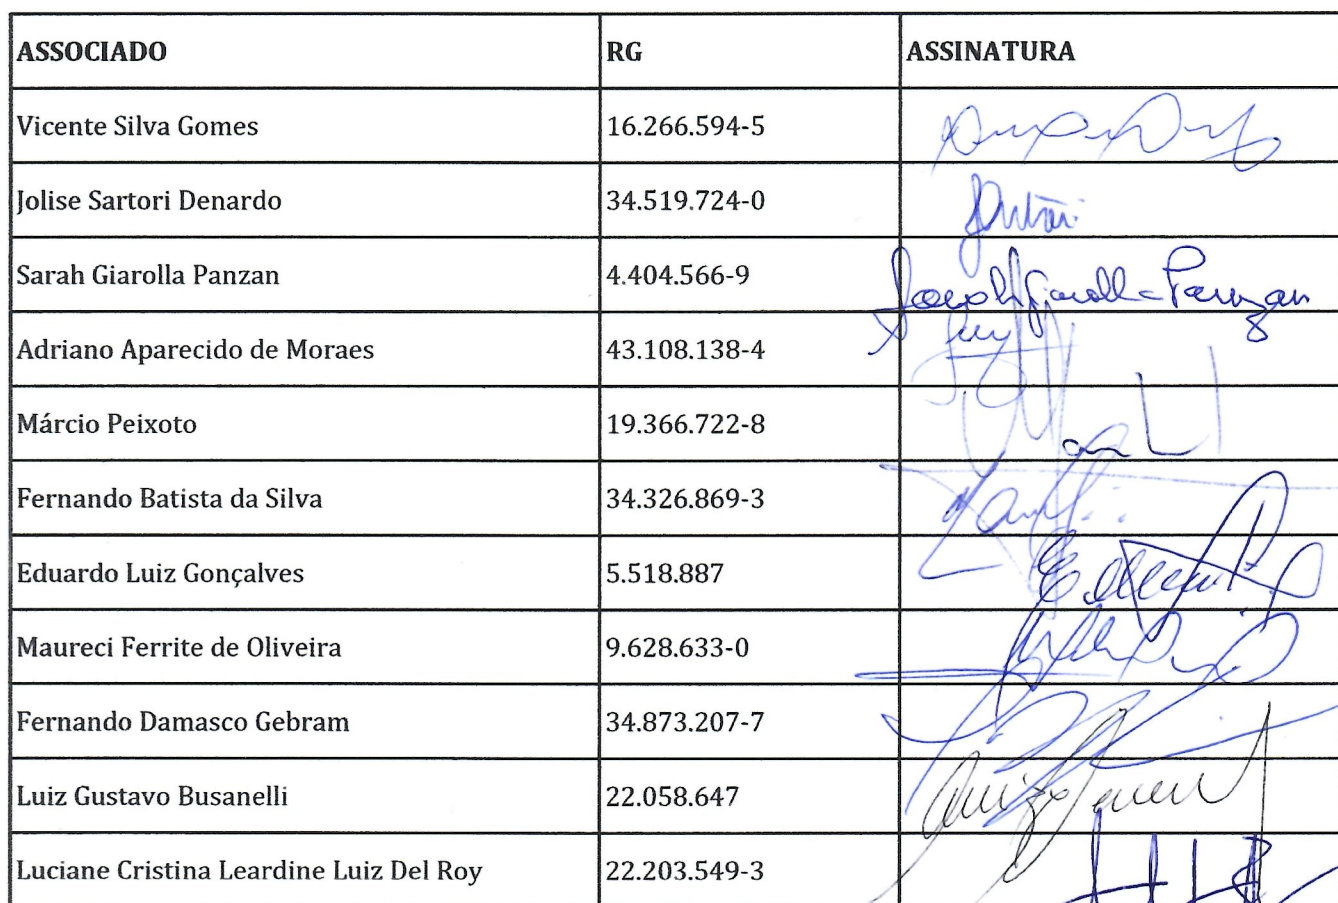 ASSOCIADO RG ASSINATURA
Vicente Silva Gomes 16.266.594-5
Jolise Sartori Denardo 34.519.724-0
Sarah Giarolla Panzan 4.404.566-9 Sarah Giarolla Panzan
Adriano Aparecido de Moraes 43.108.138-4
Márcio Peixoto 19.366.722-8
Fernando Batista da Silva 34.326.869-3
Eduardo Luiz Gonçalves 5.518.887
Maureci Ferrite de Oliveira 9.628.633-0
Fernando Damasco Gebram 34.873.207-7
Luiz Gustavo Busanelli 22.058.647
Luciane Cristina Leardine Luiz Del Roy 22.203.549-3